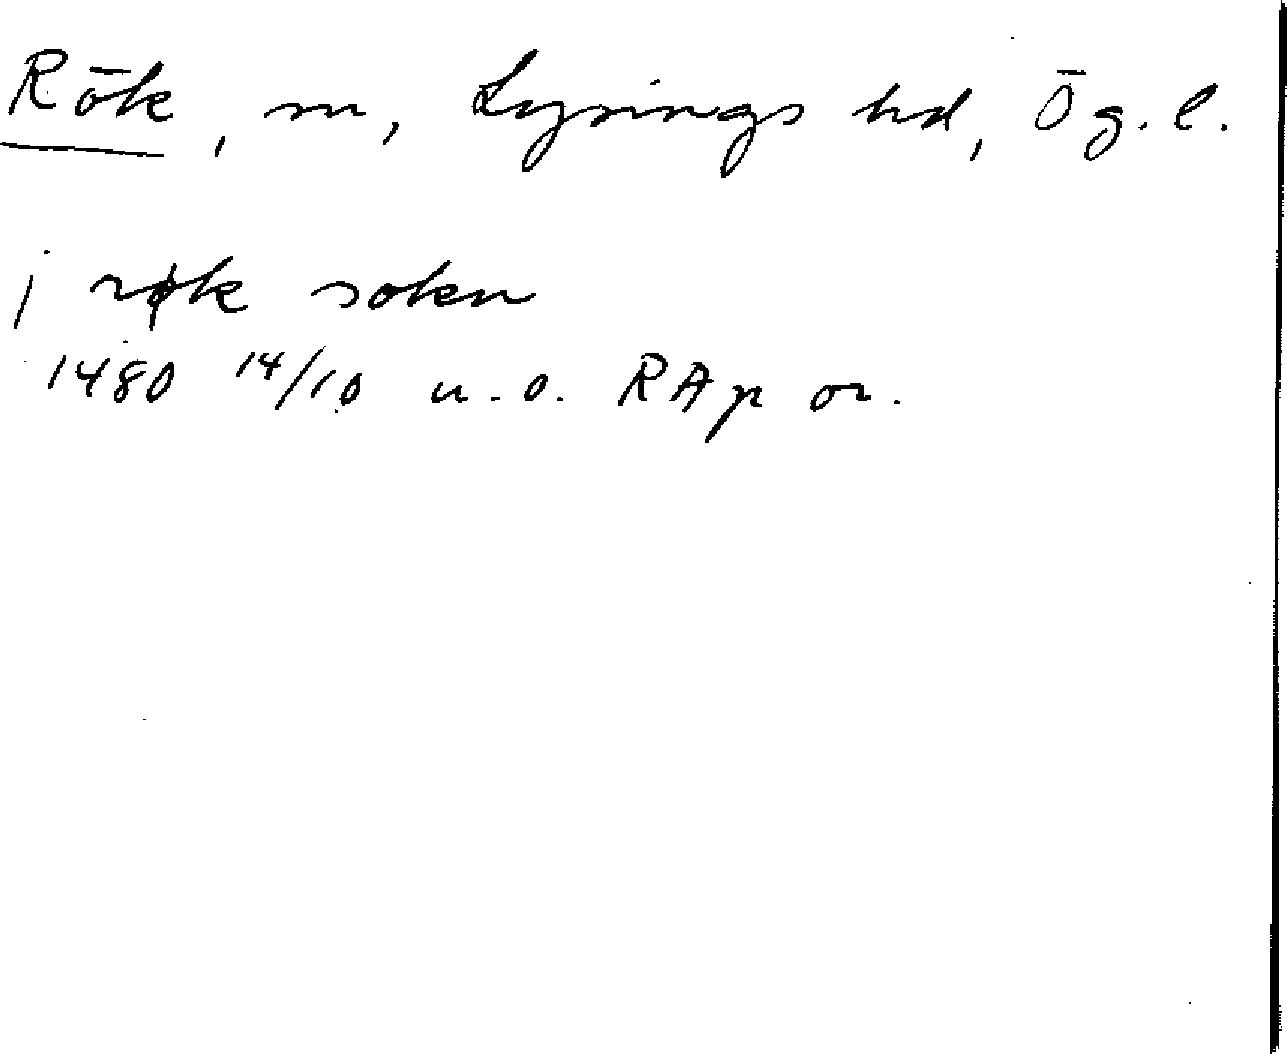 Rök, sn, Lysings hd, Ög.l.
j røk sokn
1480 14/10 u.o. RAp or.